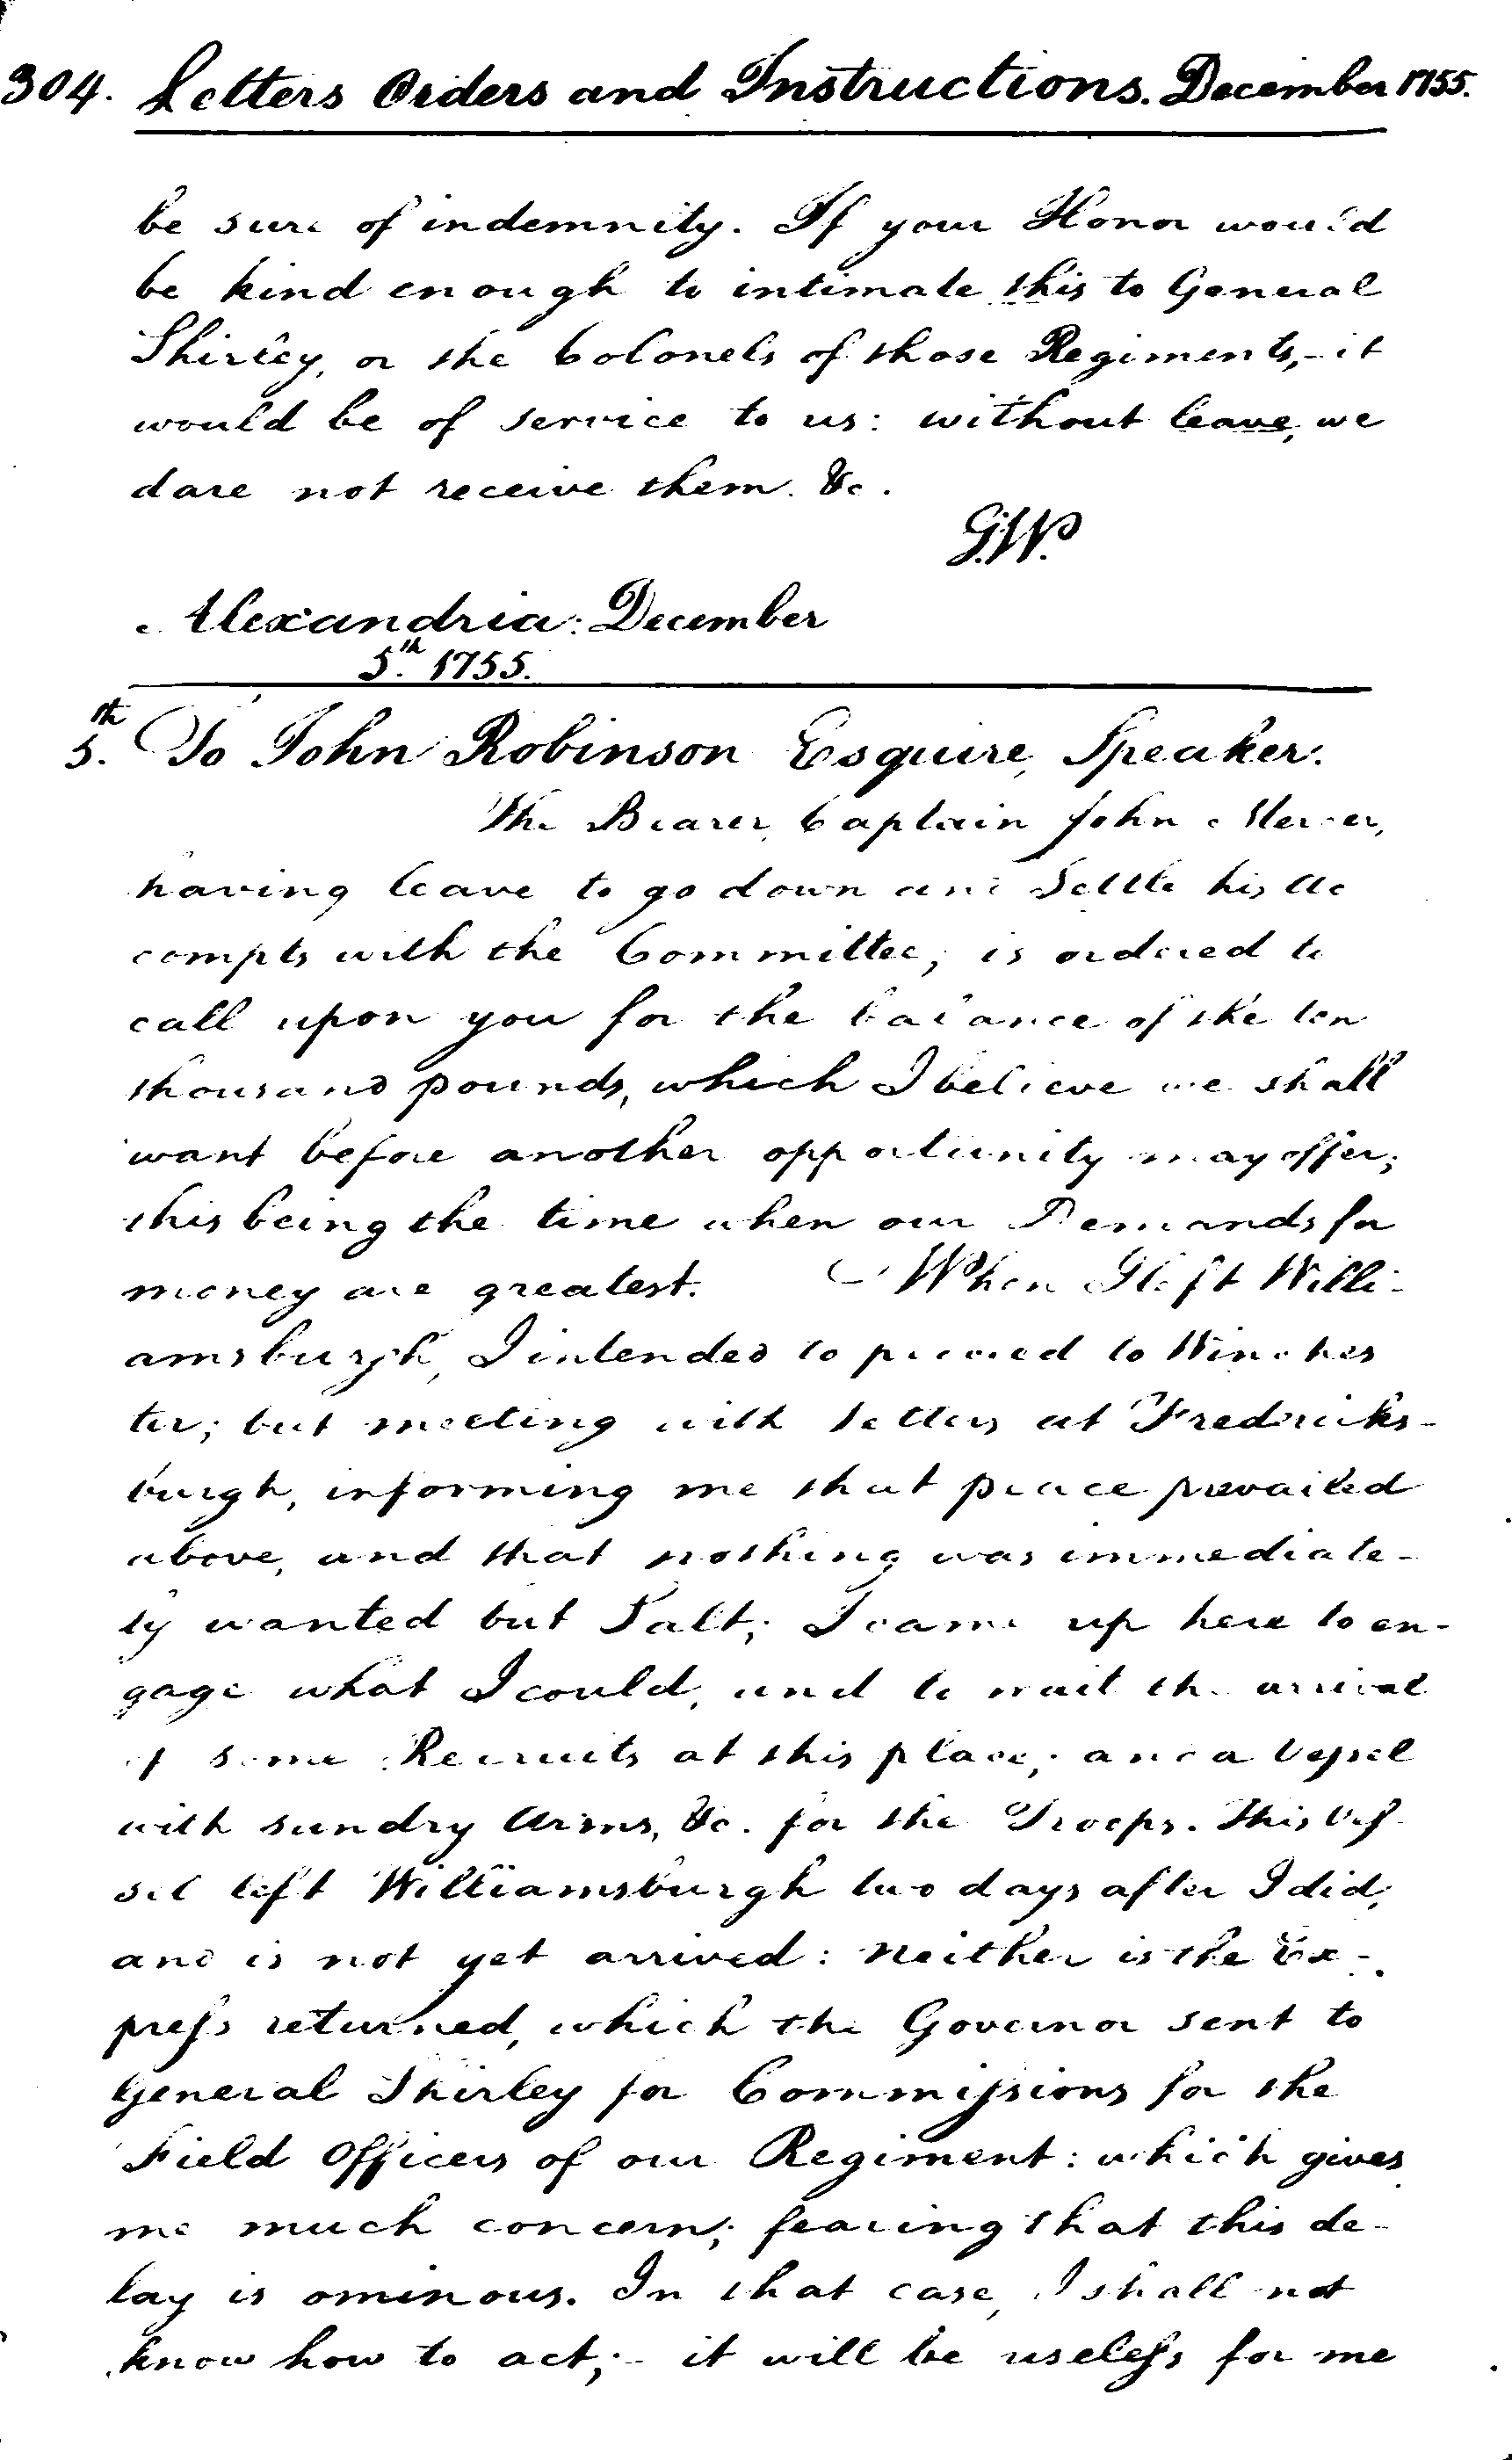 304. Letters Orders and Instructions. December 1755.
be sure of indemnity. If your Honor would
be kind enough to intimate this to General
Shirley, or the Colonels of those Regiments,-it
would be of service to us: without leave, we
dare not receive them. &c.
G.W.
Alexandria: December
5th. 1755.
5th. To John Robinson Esquire, Speaker.
The Bearer, Captain John Mercer,
having leave to go down and Settle his Ac
compts with the Committee, is ordered to
call upon you for the balance of the ten
thousand pounds, which I believe we shall
want before another opportunity may offer;
this being the time when our Demands for
money are greatest. When I left Willi-
amsburgh, I intended to proceed to Winches
ter; but meeting with letters at Fredericks-
burgh, informing me that peace prevailed
above, and that nothing was immediate-
ly wanted but Salt; I came up here to en-
gage what I could, and to wait the arrival
of some Recruits at this place; and a Vessel
with sundry Arms, &c. for the Troops. This Ves-
sel left Williamsburgh two days after I did,
and is not yet arrived: neither is the Ex-
press returned, which the Governor sent to
General Shirley for Commissions for the
Field Officers of our Regiment: which gives
me much concern; fearing that this de-
lay is ominous. In that case, I shall not
know how to act;- it will be useless for me